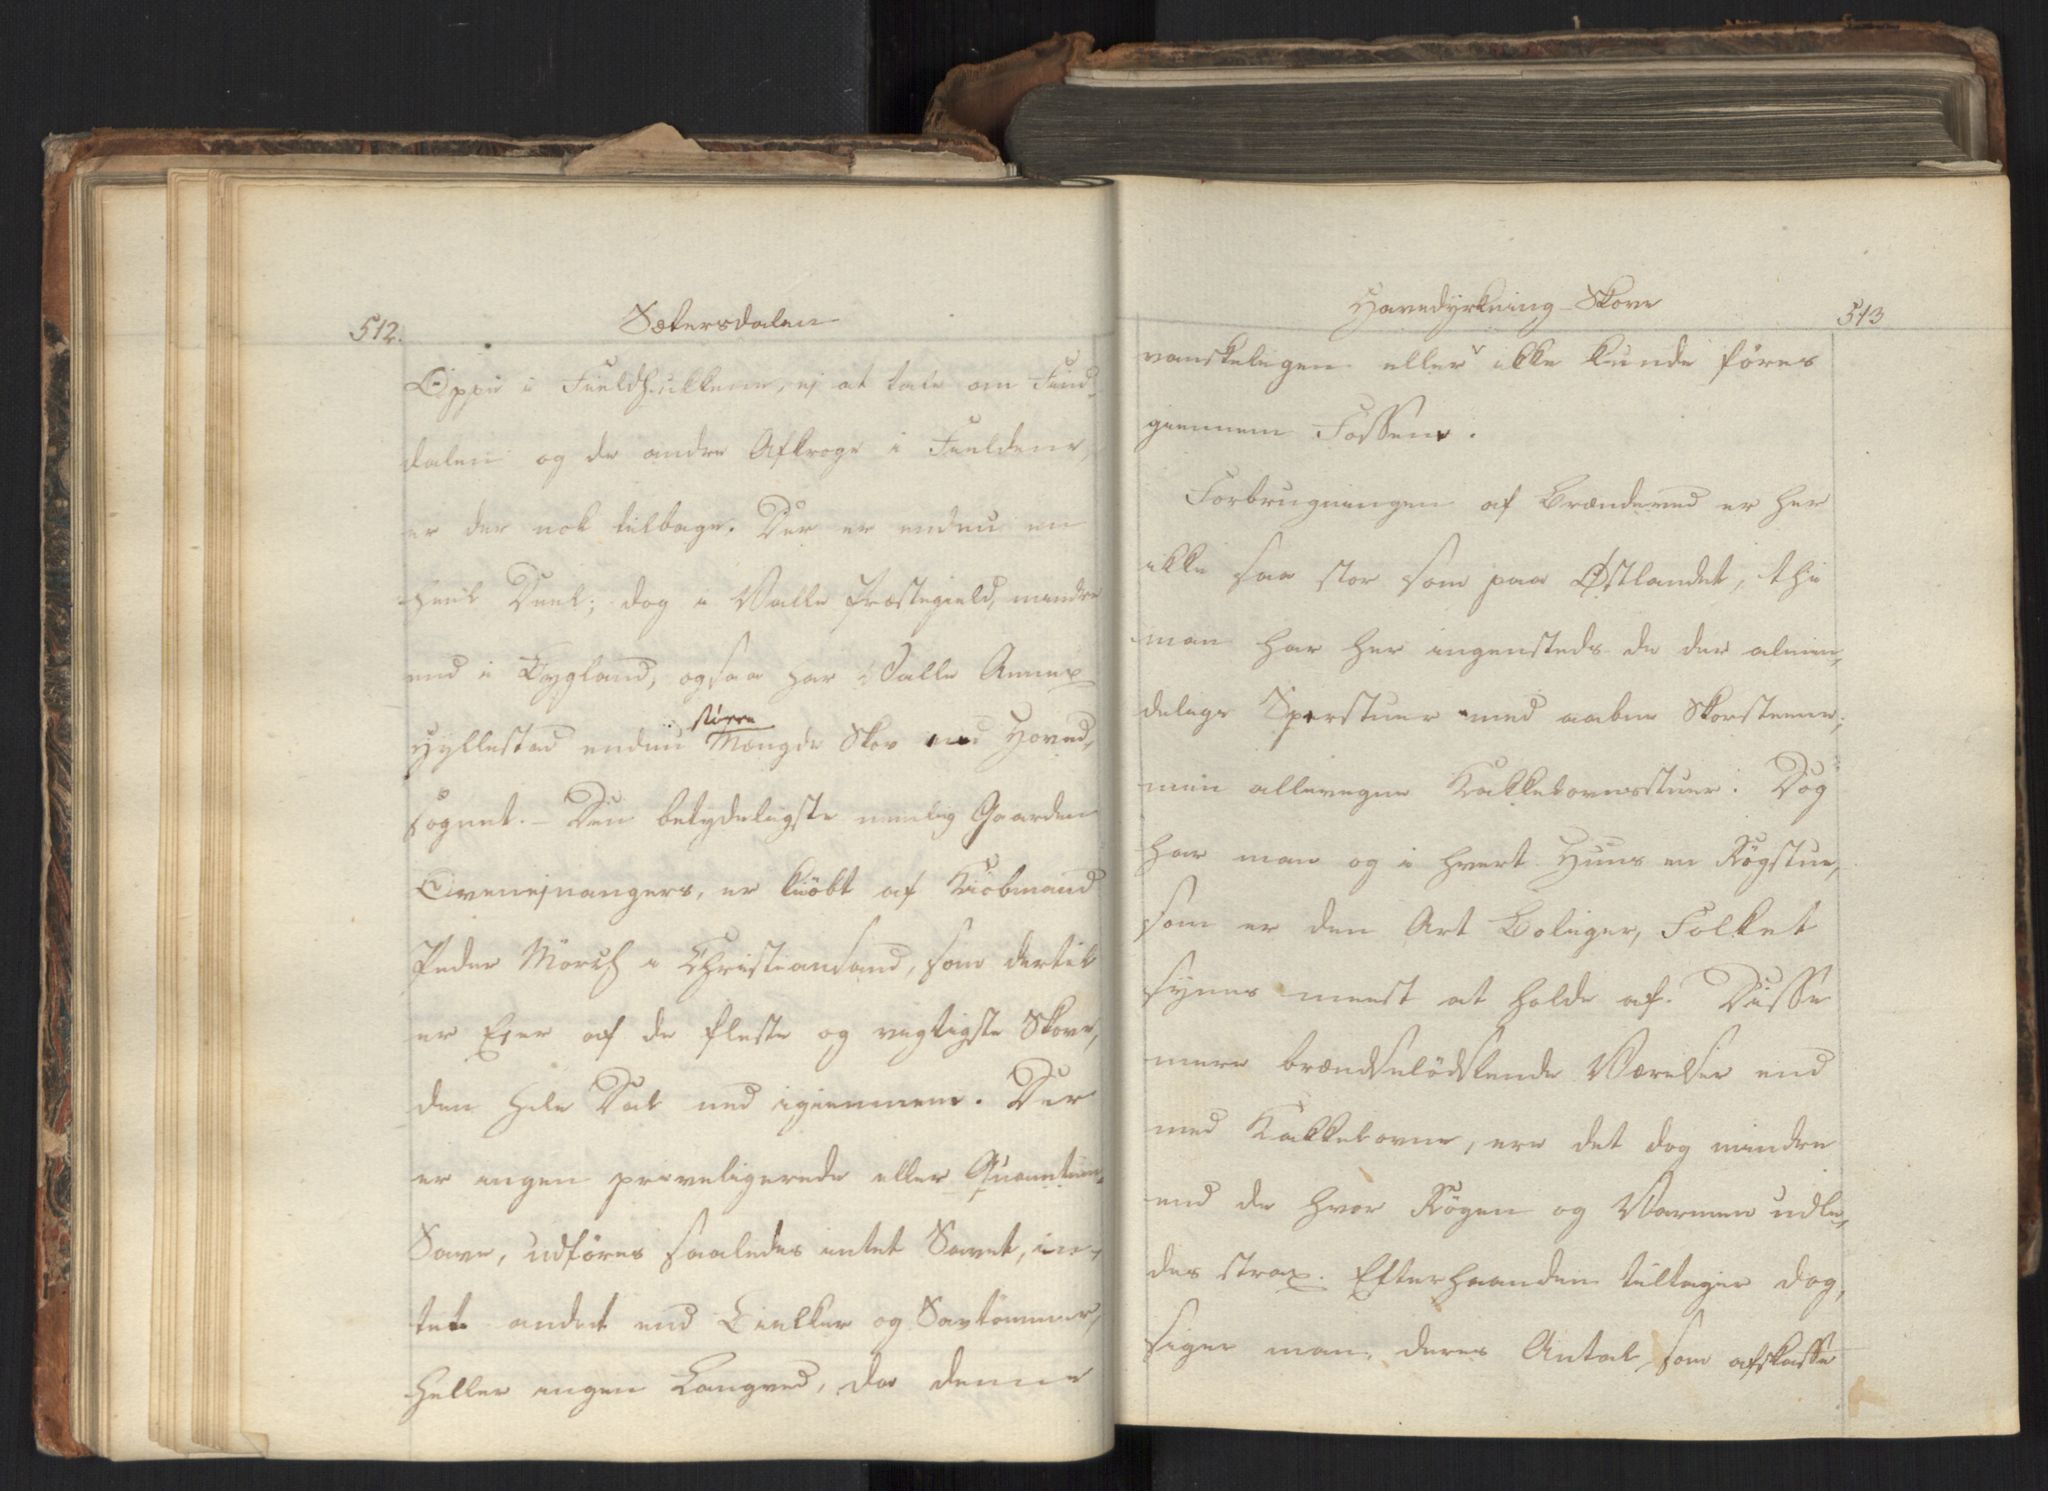 512.
Sætersdalen
Oppe i Fieldhulkerne, ej at tale om Find-
dalen og de andre Afkroge i Fieldene,
er der nok tilbage. Der er endnu en
heel Deel; dog i Valle Præstegield, mindre
end i Bygland, ogsaa har Valle Annex
Hyllestad endnu større Mængde Skov end Hoved-
sognet. – Den betydeligste nemlig Gaarden
er kiöbt af Kiöbmand
Peder Mörch i Christiansand, som dertil
er Ejer af de fleste og vigtigste Skove,
den hele Dal ned igiennem. Der
er ingen priveligerede eller Quantum-
Save, udföres saaledes intet Savet, in-
tet andet end Bielker og Savtömmer,
heller ingen Langved, da denne
Havedyrkning – Skove
513
vanskeligen eller ikke kunde föres
giennem Fossene.
Forbrugningen af Brændeved er her
ikke saa stor som paa Østlandet, thi
man har her ingensteds de der almin-
delige Sperstuer med aabne Skorstene,
men allevegne Kakkelovnsstuer. Dog
har man og i hvert Huus en Rögstue,
som er den Art Boliger, Folket
synes meest at holde af. Disse
mere brændselödslende Værelser end
med Kakkelovne, ere det dog mindre
end de hvor Rögen og Varmen udle-
des strax. Efterhaanden tiltager dog,
siger man, deres Antal, som afskaffe